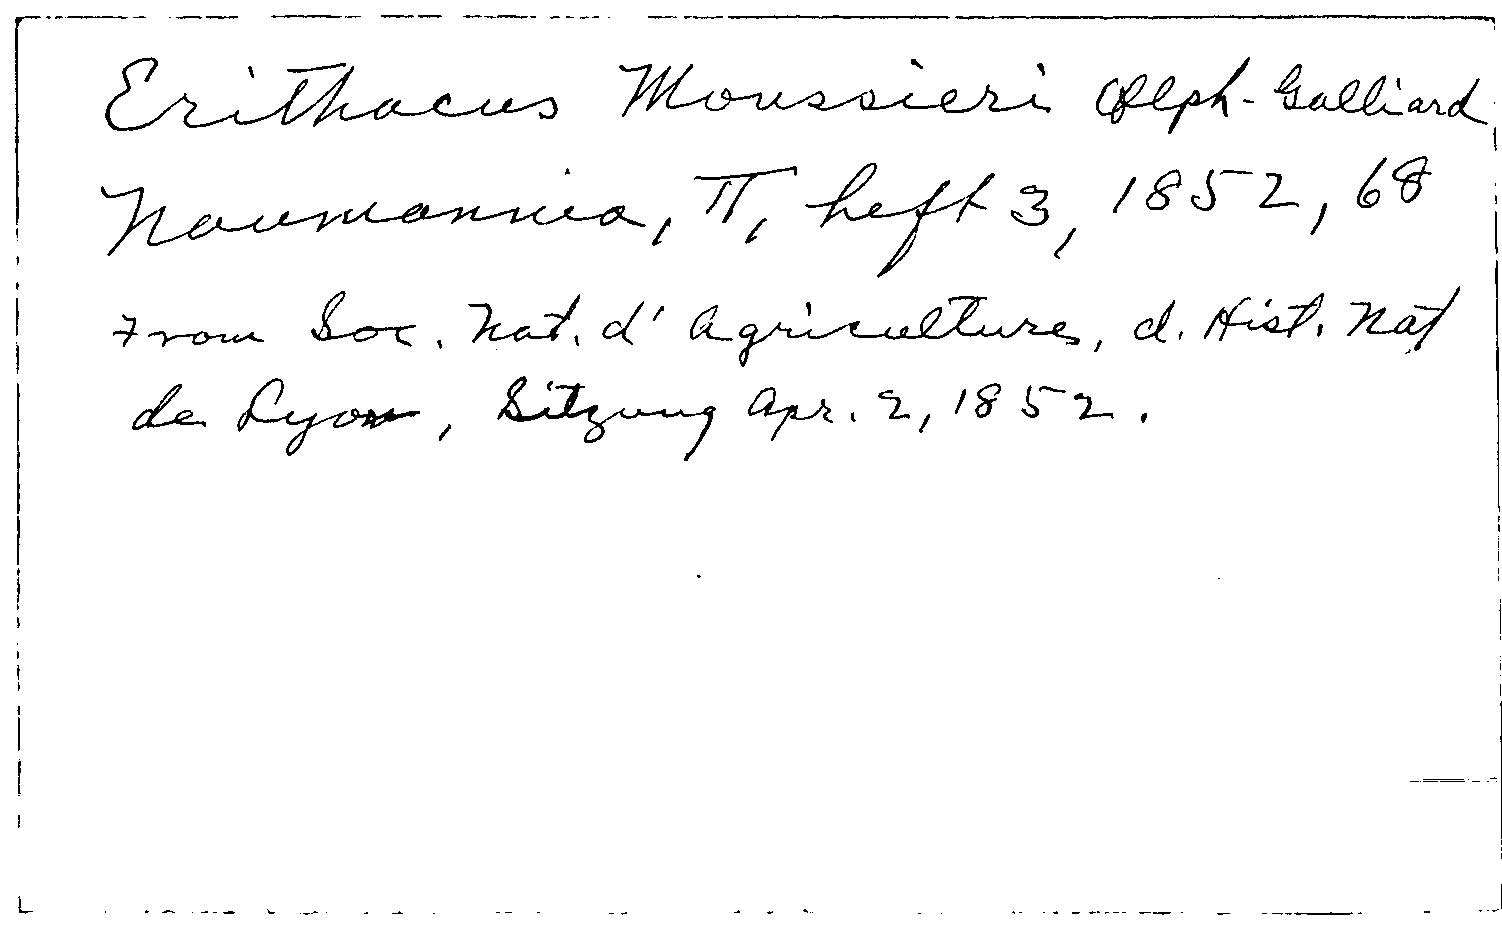 Erithacus Moussieri Olph-Galliard
Naumannia, II, heft 3, 1852, 68
From Soc. Nat. d' Agriculture, d. Hist. Nat
de Lyon, Sitzung Apr. 2, 1852.